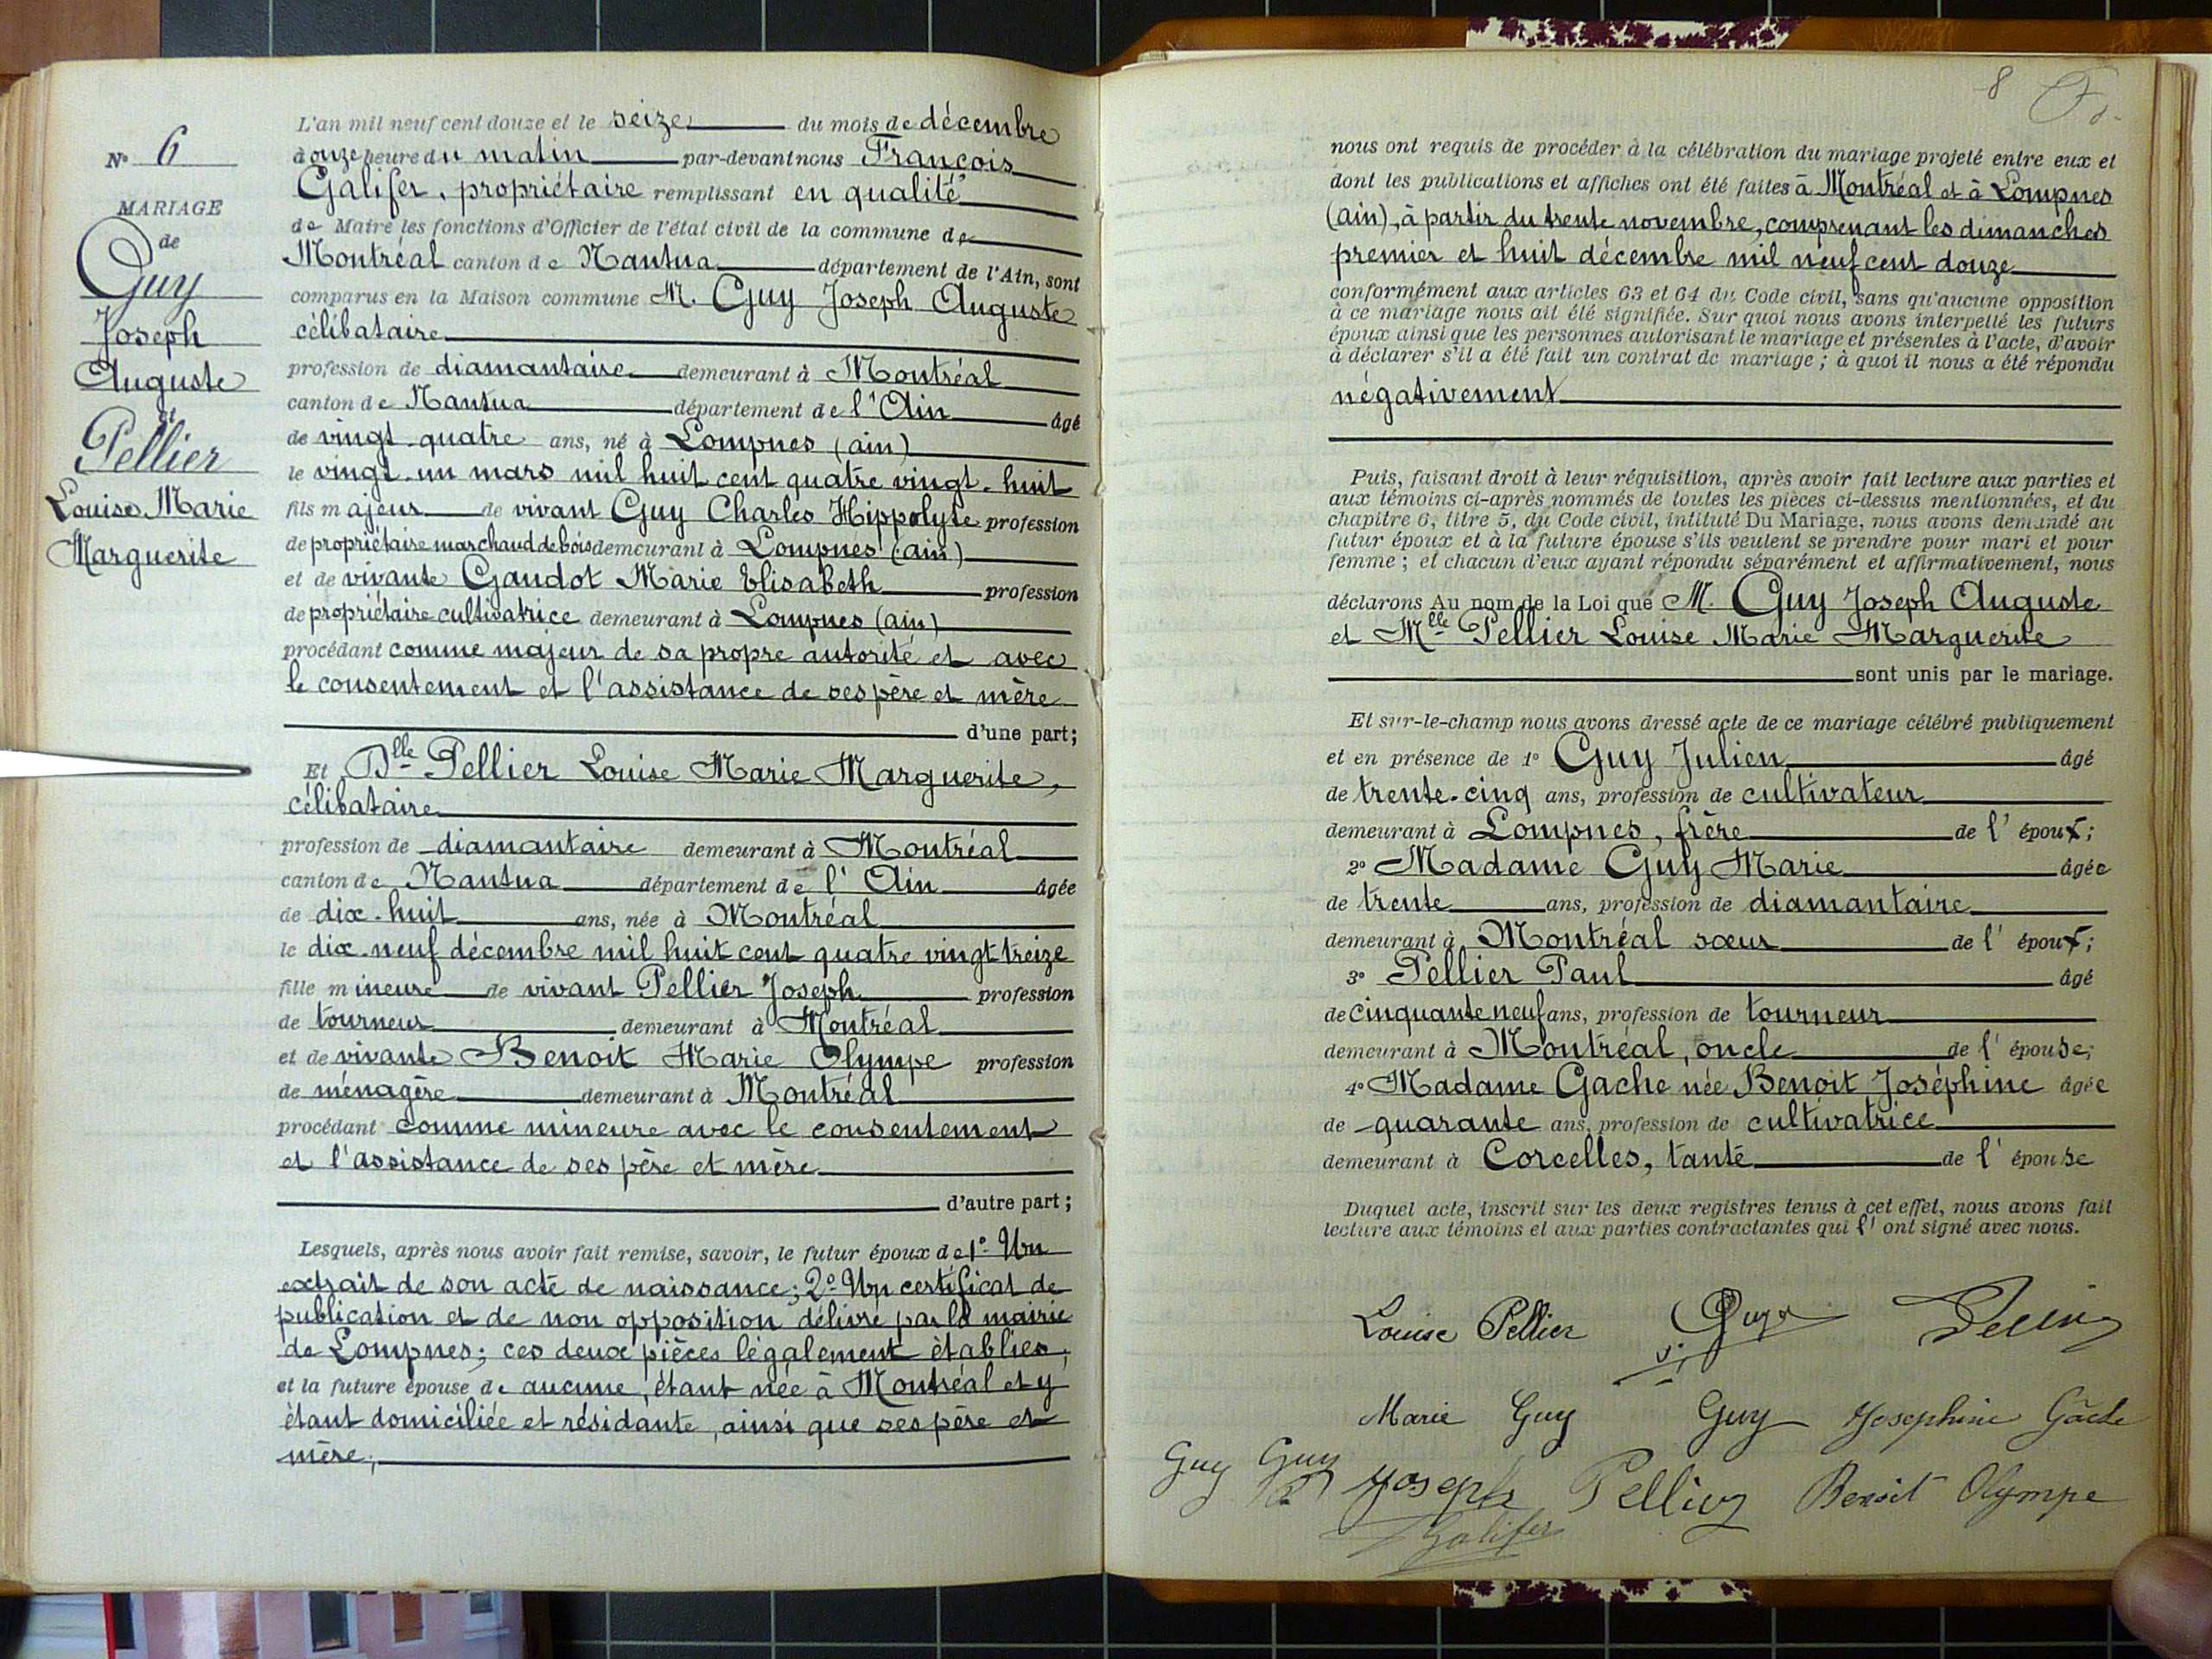 N° 6
MARIAGE
de
Guy
Joseph
Auguste
et
Pellier
Louise Marie
Marguerite
L'an mil neuf cent douze et le seize du mois de décembre
à onze heure du matin par-devant nous François
Galifer, propriétaire remplissant en qualité
de Maire les fonctions d'Officier de l'état civil de la commune de
Montréal canton de Nantua département de l'Ain, sont
comparus en la Maison commune M. Guy Joseph Auguste
célibataire
profession de diamantaire demeurant à Montréal
canton de Nantua département de l'Ain âgé
de vingt-quatre ans, né à Lompnes (ain)
le vingt-un mars mil huit cent quatre vingt-huit
fils majeur de vivant Guy Charles Hippolyte profession
de propriétaire marchand de bois demeurant à Lompnes (ain)
et de vivante Gaudot Marie Elisabeth profession
de propriétaire cultivatrice demeurant à Lompnes (ain)
procédant comme majeur de sa propre autorité et avec
le consentement et l'assistance de ses père et mère
d'une part;
Et Dlle Pellier Louise Marie Marguerite,
célibataire
profession de diamantaire demeurant à Montréal
canton de Nantua département de l'Ain âgée
de dix-huit ans, née à Montréal
le dix-neuf décembre mil huit cent quatre vingt treize
fille mineure de vivant Pellier Joseph profession
de tourneur demeurant à Montréal
et de vivante Benoit Marie Olympe profession
de ménagère demeurant à Montréal
procédant comme mineure avec le consentement
et l'assistance de ses père et mère
d'autre part;
Lesquels, après nous avoir fait remise, savoir, le futur époux de 1° Un
extrait de son acte de naissance; 2° Un certificat de
publication et de non opposition délivré par la mairie
de Lompnes; ces deux pièces légalement établies,
et la future épouse de aucune, étant née à Montréal et y
étant domiciliée et résidante, ainsi que ses père et
mère;
8
nous ont requis de procéder à la célébration du mariage projeté entre eux et
dont les publications et affiches ont été faites à Montréal et à Lompnes
(ain), à partir du trente novembre, comprenant les dimanches
premier et huit décembre mil neuf cent douze
conformément aux articles 63 et 64 du Code civil, sans qu'aucune opposition
à ce mariage nous ait été signifiée. Sur quoi nous avons interpellé les futurs
époux ainsi que les personnes autorisant le mariage et présentes à l'acte, d'avoir
à déclarer s'il a été fait un contrat de mariage; à quoi il nous a été répondu
négativement
Puis, faisant droit à leur réquisition, après avoir fait lecture aux parties et
aux témoins ci-après nommés de toutes les pièces ci-dessus mentionnées, et du
chapitre 6, titre 5, du Code civil, intitulé Du Mariage, nous avons demandé au
futur époux et à la future épouse s'ils veulent se prendre pour mari et pour
femme; et chacun d'eux ayant répondu séparément et affirmativement, nous
déclarons Au nom de la Loi que M. Guy Joseph Auguste
et Mlle Pellier Louise Marie Marguerite
sont unis par le mariage.
Et sur-le-champ nous avons dressé acte de ce mariage célébré publiquement
et en présence de 1° Guy Julien âgé
de trente-cinq ans, profession de cultivateur
demeurant à Lompnes, frère de l'époux;
2° Madame Guy Marie âgée
de trente ans, profession de diamantaire
demeurant à Montréal sœur de l'époux;
3° Pellier Paul âgé
de cinquante neuf ans, profession de tourneur
demeurant à Montréal, oncle de l'épouse;
4° Madame Gache née Benoit Joséphine âgée
de quarante ans, profession de cultivatrice
demeurant à Corcelles, tante de l'épouse
Duquel acte, inscrit sur les deux registres tenus à cet effet, nous avons fait
lecture aux témoins et aux parties contractantes qui l'ont signé avec nous.
Louise Pellier Guy
Marie Guy Guy Josephine Gache
Guy Guy Joseph Pellier Benoit Olympe
Galifer